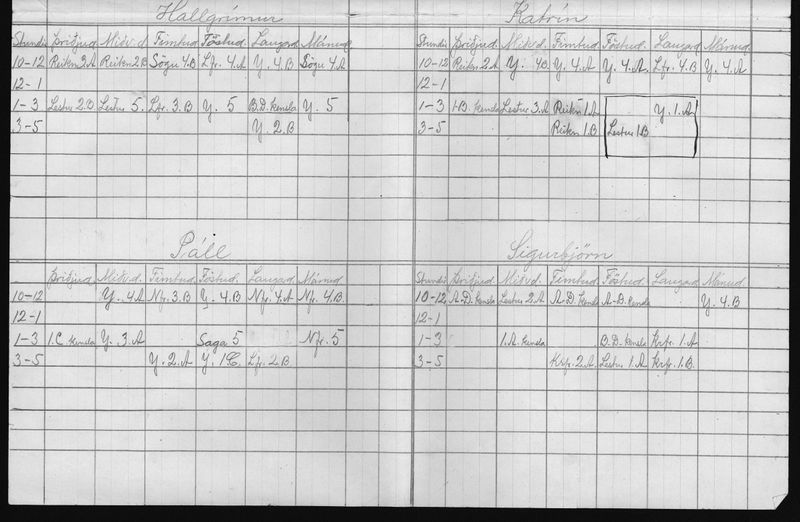 Hallgrímur
Stundir Þriðjud. Miðv.d. Fimtud. Föstud. Laugard. Mánud.
10-12 Reikn.3.A Reikn 2.B Sögu 4.B Lfr. 4.A Y. 4.B Sögu 4.A
12-1
1-3 Lestur 2.B Lestur 5. Lfr. 3.B Y. 5 B.D. kensla Y. 5
3-5 Y. 2.B
Katrín
Stundir Þriðjud. Miðv.d. Fimtud. Föstud. Laugard. Mánud.
10-12 Reikn 2.A Y. 4B Y. 4.A Y. 4.A. Lfr. 4.B Y. 4.A
12-1
1-3 1-B. kensla Lestur 3.A Reikn 1.A Y. 1.A
3-5 Reikn 1.B Lestur 1.B
Páll
Þriðjud. Miðv.d. Fimtud. Föstud. Laugard. Mánud.
10-12 Y. 4.A Nfr. 3.B Y. 4.B Nfr. 4.A Nfr. 4.B
12-1
1-3 1.C kensla Y. 3.A Saga 5 Nfr. 5
3-5 Y. 2.A Y. 1C. Lfr. 2.B
Sigurbjörn
Stundir Þriðjud. Miðv.d. Fimtud. Föstud. Laugard. Mánud.
10-12 A-D. kensla Lestur 2.A A-D. kensla A-D. kensla Y. 4.B
12-1
1-3 1.A. kensla B.D. kensla Krfr. 1.A
3-5 Krfr. 2.A Lestur 1.A Krfr. 1.B